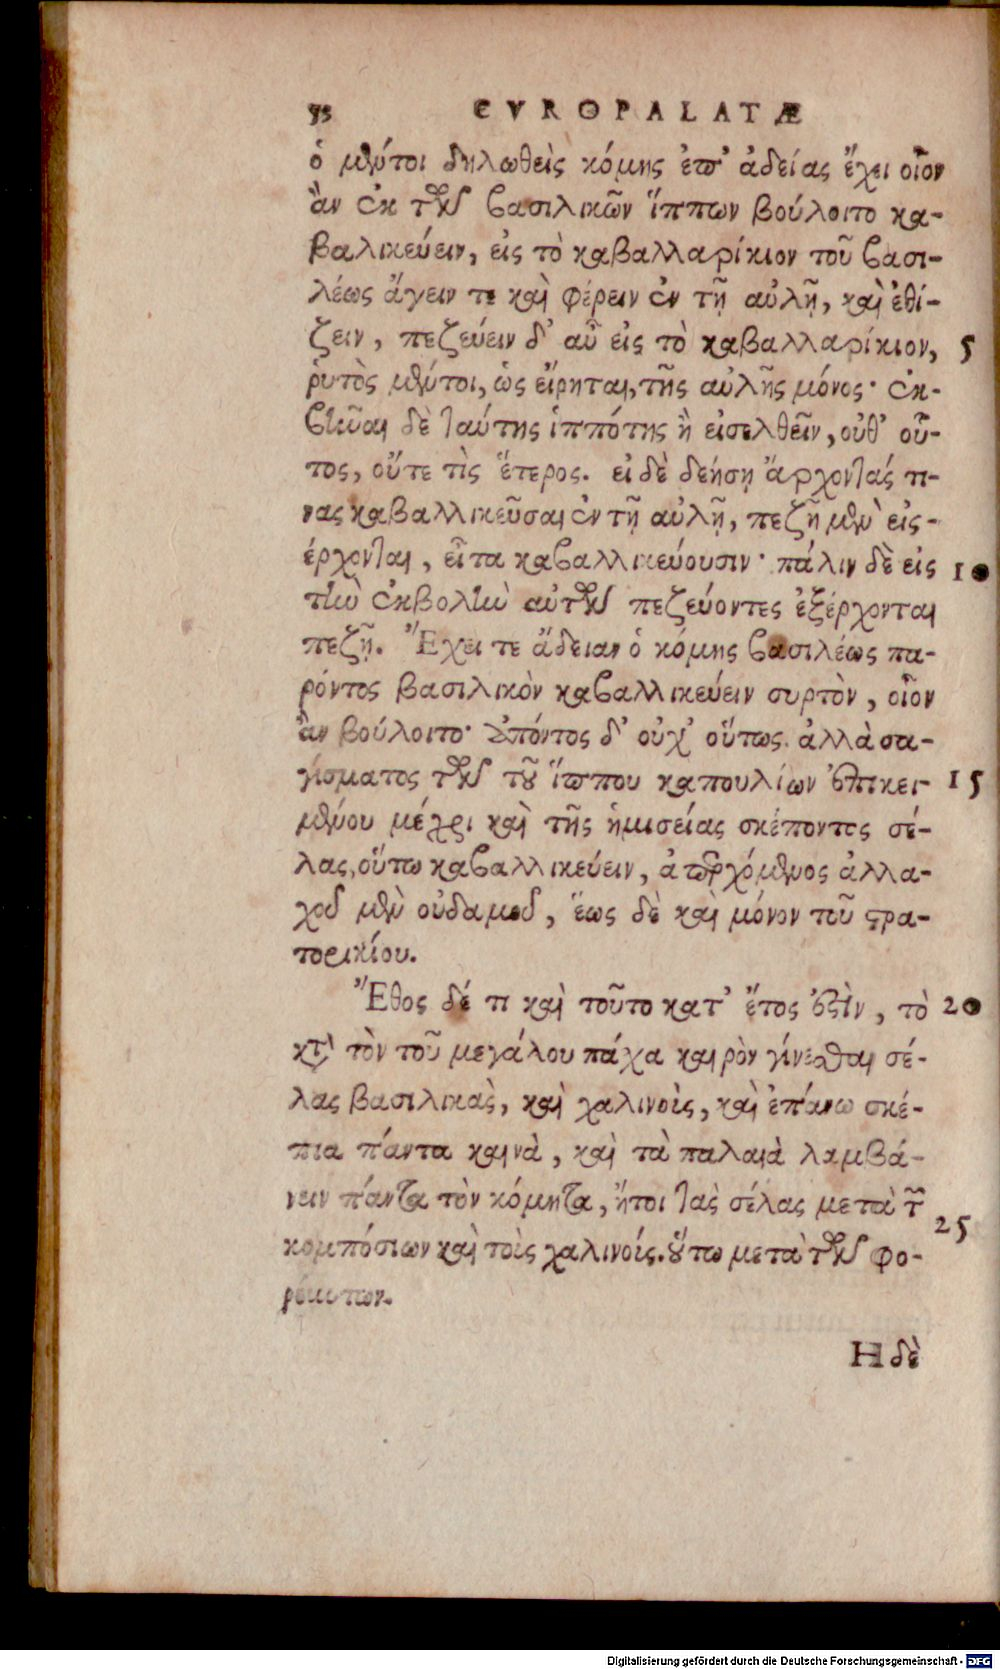 CVROPALATÆ
ὁ μέντοι δηλωθεὶς κόμης ἐπ' ἀδείας ἔχει οἷον
ἂν ἐκ τῶν βασιλικῶν ἵππων βούλοιτο κα-
βαλικεύειν, εἰς τὸ καβαλλαρίκιον τοῦ βασι-
λέως ἄγειν τε καὶ φέρειν ἐν τῇ αὐλῇ, καὶ ἐθί-
ζειν, πεζεύειν δ' αὖ εἰς τὸ καβαλλαρίκιον, 5
ἐντὸς μέντοι, ὡς εἴρηται, τῆς αὐλῆς μόνος· ἐκ-
βῆναι δὲ ταύτης ἱππότης ἢ εἰσελθεῖν, οὐθ' οὗ-
τος, οὔτε τὶς ἕτερος. εἰ δὲ δεήσῃ ἄρχοντάς τι-
νας καβαλλικεῦσαι ἐν τῇ αὐλῇ, πεζῇ μὲν εἰς-
έρχονται, εἶτα καβαλλικεύουσιν· πάλιν δὲ εἰς 10
τὴν ἐκβολὴν αὐτῶν πεζεύοντες ἐξέρχονται
πεζῇ. Ἔχει τε ἄδειαν ὁ κόμης βασιλέως πα-
ρόντος βασιλικὸν καβαλλικεύειν συρτὸν, οἷον
ἂν βούλοιτο· ἀπόντος δ' οὐχ' οὕτως. ἀλλὰ σα-
γίσματος τῶν τοῦ ἵππου καπουλίων ἐπικει- 15
μένου μέχρι καὶ τῆς ἡμισείας σκέποντος σέ-
λας, οὕτω καβαλλικεύειν, ἀπερχόμενος ἀλλα-
χοῦ μὲν οὐδαμοῦ, ἕως δὲ καὶ μόνον τοῦ στρα-
τορικίου.
Ἔθος δέ τι καὶ τοῦτο κατ' ἔτος ἐστὶν, τὸ 20
κατὰ τὸν τοῦ μεγάλου πάχα καιρὸν γίνεσθαι σέ-
λας βασιλικὰς, καὶ χαλινοὶς, καὶ ἐπάνω σκέ-
πια πάντα καινὰ, καὶ τὰ παλαιὰ λαμβά-
νειν πάντα τὸν κόμητα, ἤτοι τὰς σέλας μετὰ τῶν
κομπόσιων καὶ τοὶς χαλινοίς. οὕτω μετὰ τῶν φο- 25
ρέντων.
Η δὲ
Digitalisierung gefördert durch die Deutsche Forschungsgemeinschaft - DFG